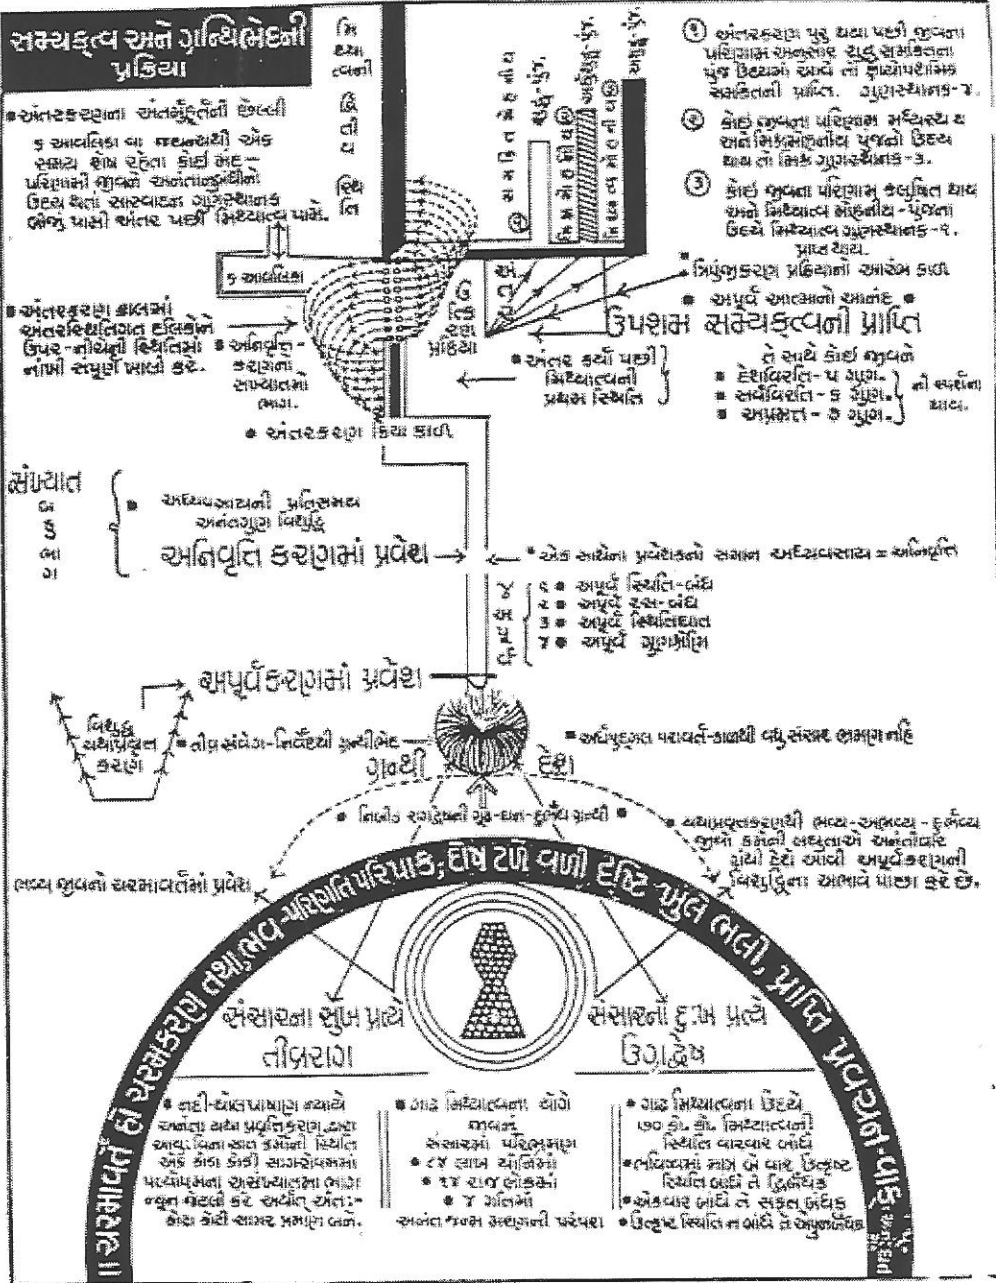 સમ્યકત્વ અને ગ્રન્થિભેદની
પ્રક્રિયા
મિ
થ્યા
ત્વની
સ્થિ
તિ
• અંતરકરણના અંતર્મુહૂર્તની છેલ્લી
૬ આવલિકા વા જઘન્યથી એક
સમય શેષ રહેતા કોઈ મંદ-
પરિણામી જીવને અનંતાનુબંધીનો
ઉદય થતાં સાસ્વાદન ગુણસ્થાનક
પામી અંતર પછી મિથ્યાત્વ પામે.
૬ આવલિકા
• અંતરકરણ કાલમાં
અંતરસ્થિતિગત દલિકોને
ઉપર-નીચેની સ્થિતિમાં
નાંખી સંપૂર્ણ ખાલી કરે.
• અનિવૃત્તિ-
કરણના
સંખ્યાતમો
ભાગ.
• અંતરકરણ ક્રિયા કાળ
સમકિત મોહનીય
શુદ્ધ-પુંજ
૧
મિશ્ર મોહનીય
અર્ધશુદ્ધ-પુંજ
૨
મિથ્યાત્વ મોહનીય
અશુદ્ધ-પુંજ
૩
પ્રક્રિયા
૧ અંતરકરણ પુરુ થયા પછી જીવના
પરિણામ અનુસાર શુદ્ધ સમકિતના
પુંજ ઉદયમાં આવે તો ક્ષાયોપશમિક
સમકિતની પ્રાપ્તિ. ગુણસ્થાનક-૪.
૨ કોઈ જીવના પરિણામ મધ્યસ્થ થાય
અને મિશ્રમોહનીય પુંજનો ઉદય
થાય તો મિશ્ર ગુણસ્થાનક-૩.
૩ કોઈ જીવના પરિણામ કલુષિત થાય
અને મિથ્યાત્વ મોહનીય-પુંજના
ઉદયે મિથ્યાત્વ ગુણસ્થાનક-૧.
પ્રાપ્ત થાય.
• ત્રિપુંજીકરણ પ્રક્રિયાનો આરંભ કાળ
• અપૂર્વ આત્માનો આનંદ •
ઉપશમ સમ્યકત્વની પ્રાપ્તિ
• અંતર કર્યા પછી
મિથ્યાત્વની
પ્રથમ સ્થિતિ
તે સાથે કોઈ જીવને
• દેશવિરતિ-૫ ગુણ.
• સર્વવિરતિ-૬ ગુણ.
• અપ્રમત્ત-૭ ગુણ.
ની સ્પર્શના
થાય.
સંખ્યાત
બ
હુ
ભા
ગ
• અધ્યવસાયની પ્રતિસમય
અનંતગુણ વિશુદ્ધિ
અનિવૃત્તિ કરણમાં પ્રવેશ
• એક સાથેના પ્રવેશકનો સમાન અધ્યવસાય = અનિવૃત્તિ
૪ અપૂર્વ
૧ • અપૂર્વ સ્થિતિ-બંધ
૨ • અપૂર્વ રસ-બંધ
૩ • અપૂર્વ સ્થિતિઘાત
૪ • અપૂર્વ ગુણશ્રેણિ
અપૂર્વકરણમાં પ્રવેશ
વિશુદ્ધ
યથાપ્રવૃત્ત
કરણ
• તીવ્ર સંવેગ-નિર્વેદથી ગ્રન્થીભેદ
• અર્ધપુદ્ગલ પરાવર્ત-કાળથી વધુ સંસાર ભ્રમણ નહિ
ગ્રન્થી દેશ
• નિબીડ રાગદ્વેષની ગૂઢ-ઘન-દુર્ભેધ ગ્રન્થી •
• યથાપ્રવૃત્તકરણથી ભવ્ય-અભવ્ય-દુર્ભવ્ય
જીવો કર્મની લઘુતાએ અનંતીવાર
ગ્રંથી દેશે આવી અપૂર્વકરણની
વિશુદ્ધિના અભાવે પાછા ફરે છે.
ભવ્ય જીવનો ચરમાવર્તમાં પ્રવેશ
॥ ચરમાવર્તે હો ચરમકરણ તથા, ભવ-પરિણતિ પરિપાક; દોષ ટળે વળી દૃષ્ટિ ખુલે ભલી, પ્રાપ્તિ પ્રવચન-વાક
સંસારના સુખ પ્રત્યે
તીવ્રરાગ
સંસારનો દુ:ખ પ્રત્યે
ઉગ્રદ્વેષ
• નદી-ઘોલ પાષાણ ન્યાયે
અનંતા યથા પ્રવૃત્તિકરણ દ્વારા
આયુ: વિના સાત કર્મોની સ્થિતિ
એક કોડા કોડી સાગરોપમમાં
પલ્યોપમના અસંખ્યાતમા ભાગ
ન્યૂન જેટલી કરે અર્થાત્ અંત:-
કોડા કોડી સાગર પ્રમાણ બને.
• ગાઢ મિથ્યાત્વના યોગે
જીવનું
સંસારમાં પરિભ્રમણ
• ૮૪ લાખ યોનિમાં
• ૧૪ રાજ લોકમાં
• ૪ ગતિમાં
અનંત જન્મ મરણની પરંપરા
• ગાઢ મિથ્યાત્વના ઉદયે
૭૦ કો. કો. મિથ્યાત્વની
સ્થિતિ વારંવાર બાંધે
• ભવિષ્યમાં માત્ર બે વાર ઉત્કૃષ્ટ
સ્થિતિ બાંધે તે દ્વિર્બંધક
• એકવાર બાંધે તે સકૃત બંધક
• ઉત્કૃષ્ટ સ્થિતિ ન બાંધે તે અપુનર્બંધક